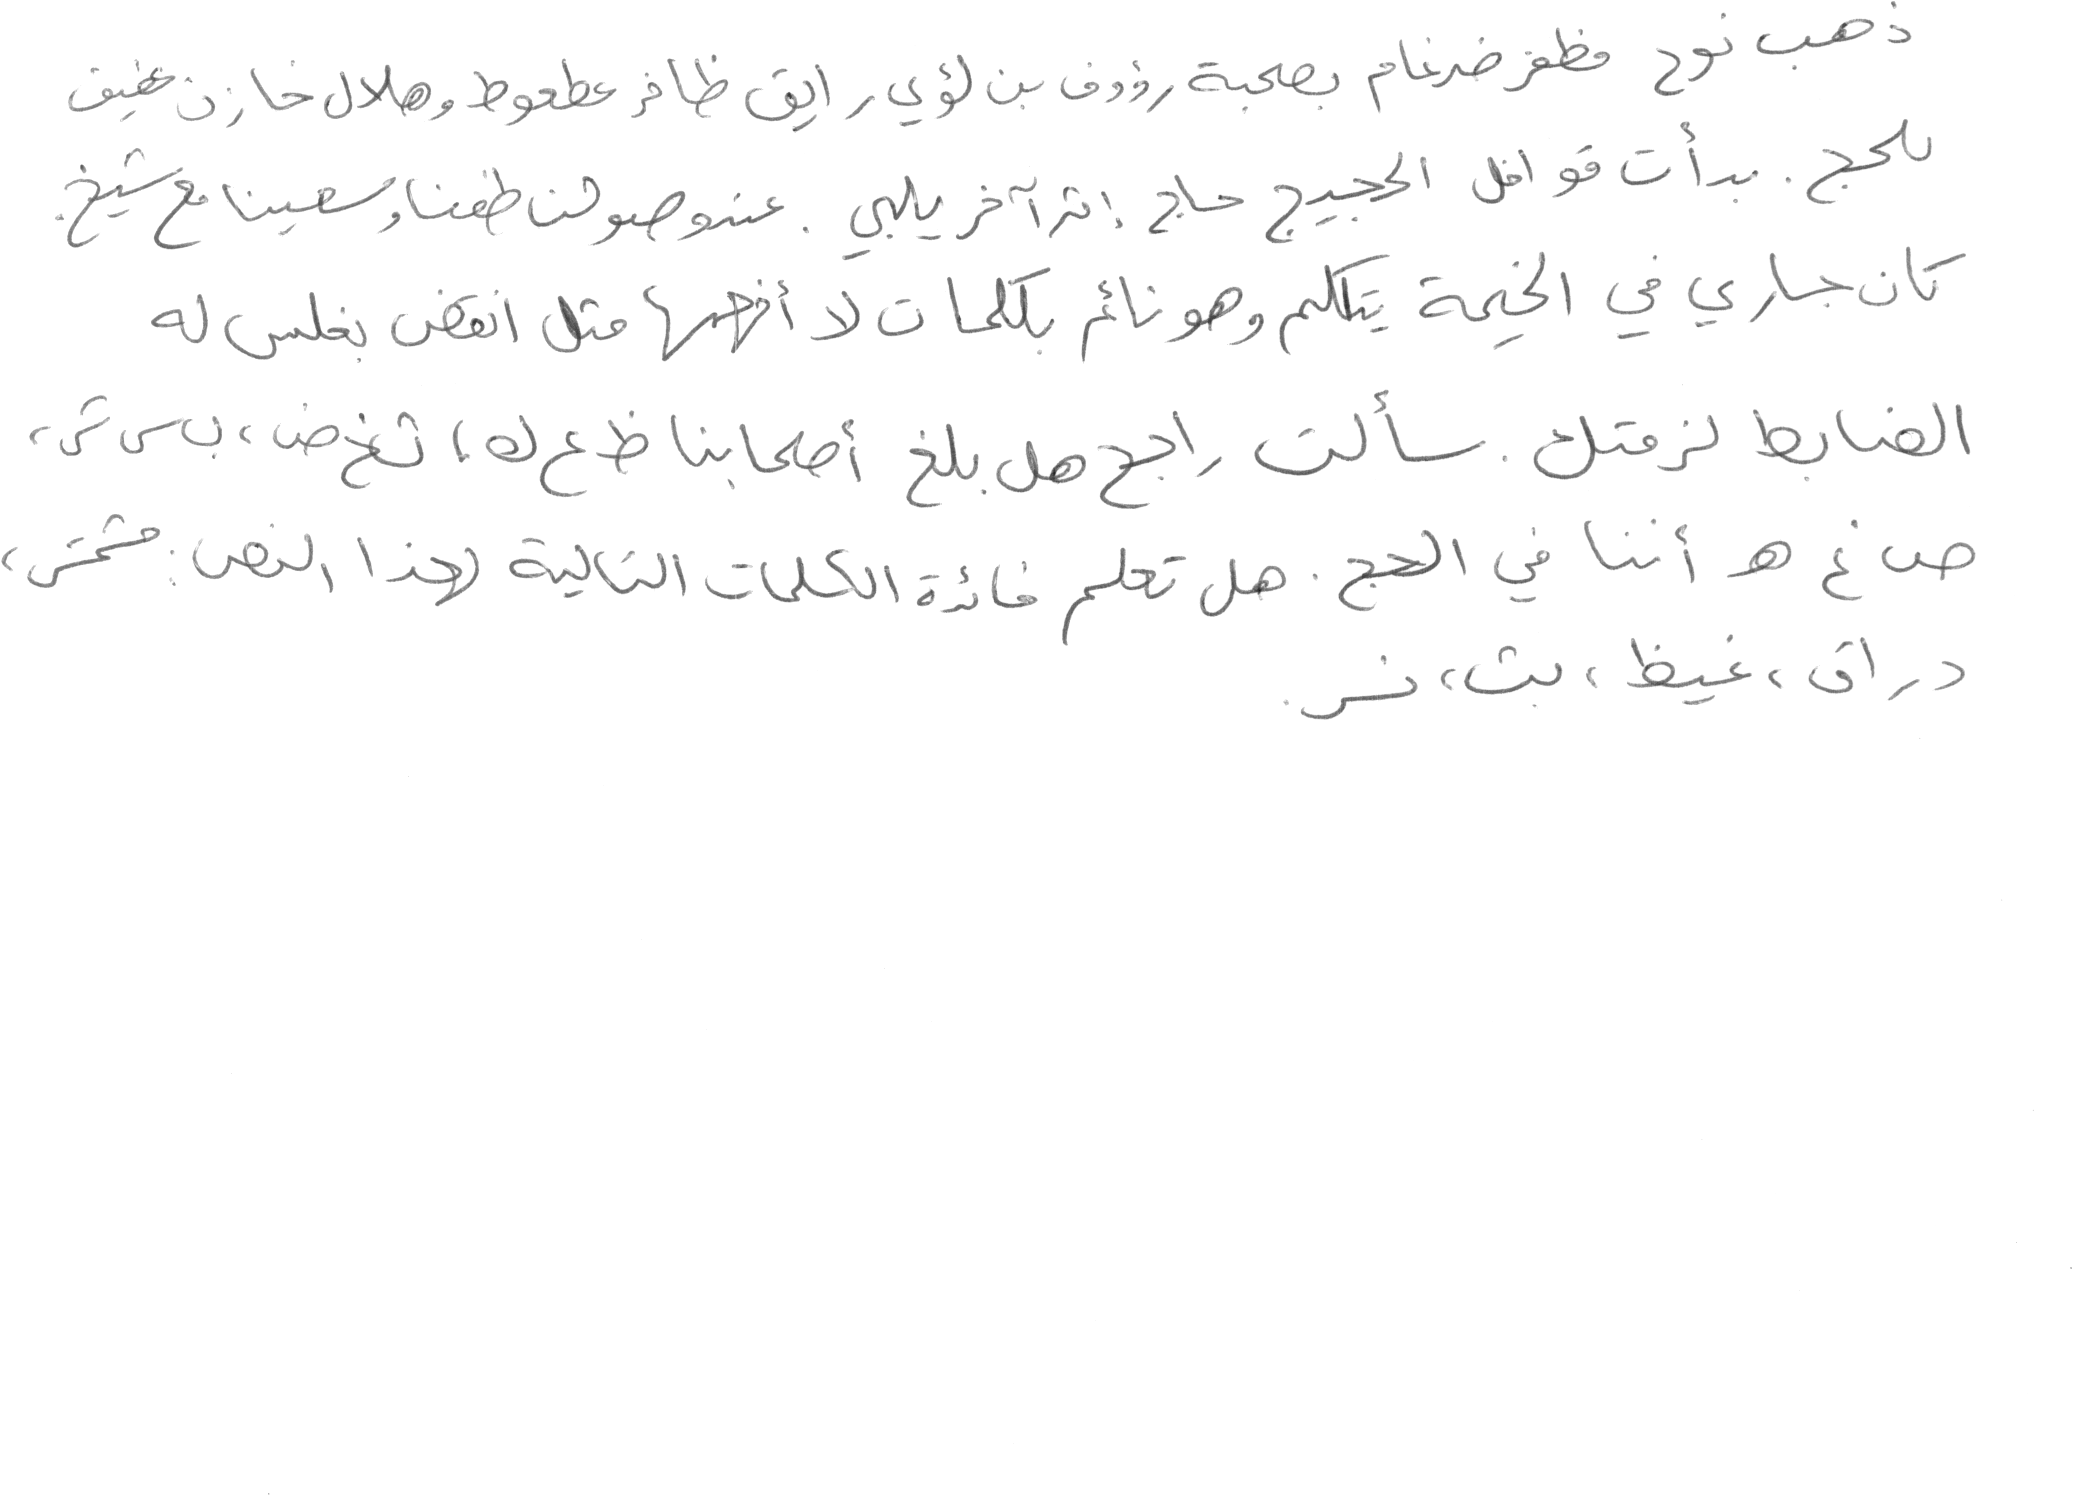 ذهب نوح مظفر ضرغام بصحبة رؤوف بن لؤي رايق ظافر عطعوط وهلال خازن عفيف
للحج. بدأت قوافل الحجيج حاج إثر آخر يلبي. عند وصولنا طفنا وسعينا مع شيخ.
كان جاري في الخيمة يتكلم وهو نائم بكلمات لا أفهمها مثل انقض بغلس له
الضابط لزمتل. سألت راجح هل بلغ أصحابنا ظ ع ك، ث غ ض، ب س ش،
ص غ ه أننا في الحج. هل تعلم فائدة الكلمات التالية لهذا النص: مشمش،
دراق، غيظ، بث، نسر.